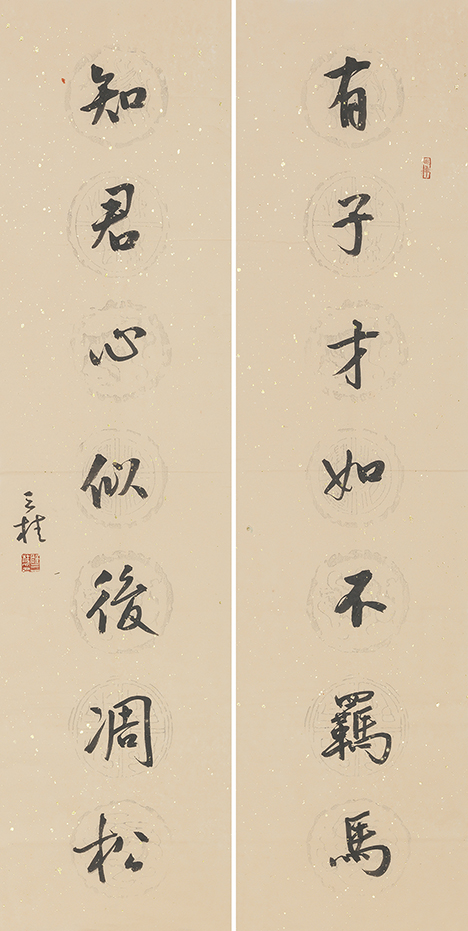 有子才如不羈馬
知君心似後凋松
桂